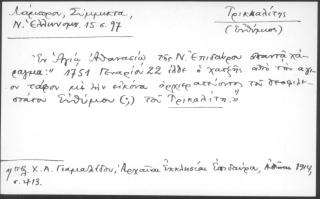 Λάμπρου, Σύμμικτα,
Ν. Ἑλληνομν. 15 σ. 97
Τρικκαλίτης
(Εὐθύμιος)
"Ἐν Ἁγίῳ Ἀθανασίῳ τῆς Ν. Ἐπιδαύρου ἀπαντᾷ χά-
ραγμα: " 1751 Γεναρίου 22 ἦλθε ὁ χατζῆς ἀπὸ τὸν ἅγι-
ον τάφον μὲ τὴν εἰκόνα ἀρχιερατεύοντος τοῦ θεοφιλε-
στάτου Εὐθυμίου (;) τοῦ Τρικκαλίτη."
Χ. Α. Γιαμαλίδου, Ἀρχαῖαι ἐκκλησίαι Ἐπιδαύρου, Ἀθῆναι 1914,
σ. 413.